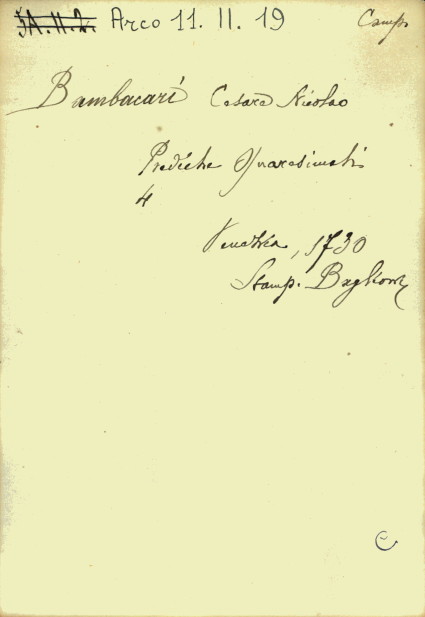 3A.II.2. Arco 11. II. 19 Camp.
Bambacari Cesare Nicolao
Prediche Quaresimali
4
Venezia, 1730
Stamp. Baglioni
C